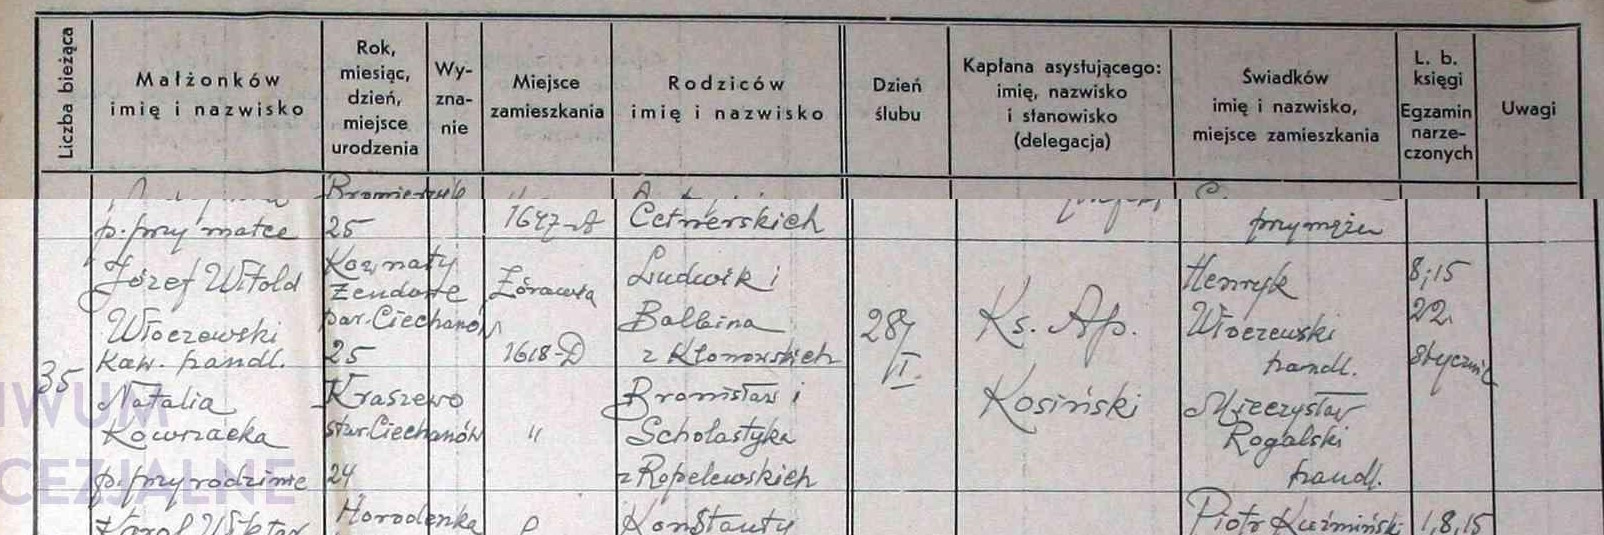 Liczba bieżąca
Małżonków
imię i nazwisko
Rok,
miesiąc,
dzień,
miejsce
urodzenia
Wy-
zna-
nie
Miejsce
zamieszkania
Rodziców
imię i nazwisko
Dzień
ślubu
Kapłana asystującego:
imię, nazwisko
i stanowisko
(delegacja)
Świadków
imię i nazwisko,
miejsce zamieszkania
L. b.
księgi
Egzamin
narze-
czonych
Uwagi
p. przy matce
25
1647-A
Cetnerskich
przy mężu
35
Józef Witold
Włoczewski
kaw. handl.
Żendowe
par. Ciechanów
25
Żórawia
1618-D
Ludwik i
Balbina
z Kłonowskich
28/
I.
Ks. Ap.
Kosiński
Henryk
Włoczewski
handl.
8,15
22
stycznia
Natalia
p. przy rodzinie
Kraszewo
star. Ciechanów
24
"
Bronisław i
Scholastyka
z Ropelewskich
Mieczysław
Rogalski
handl.
Karol Wiktor
Horodenka
Konstanty
Piotr Kuźmiński
1,8,15
IWUM
CEZJALNE